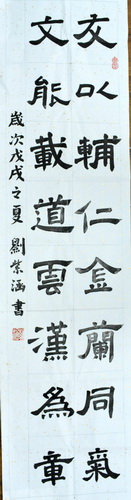 友以輔仁金蘭同氣
文能載道雲漢為章
歲次戊戌之夏 劉紫涵書